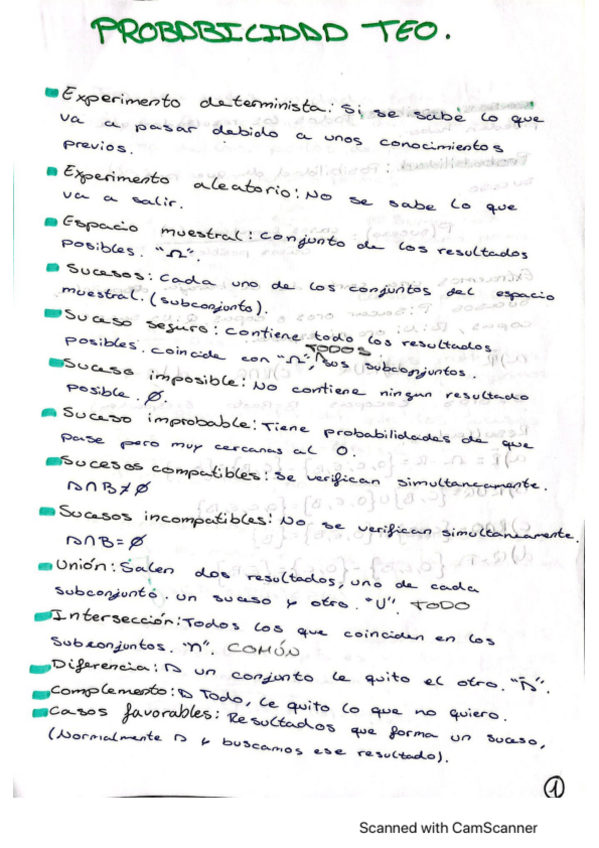 PROBABILIDAD TEO.
Experimento determinista: Si se sabe lo que
va a pasar debido a unos conocimientos
previos.
Experimento aleatorio: No se sabe lo que
va a salir.
Espacio muestral: Conjunto de los resultados
posibles. "Ω".
Sucesos: Cada uno de los conjuntos del espacio
muestral. (subconjunto).
Suceso seguro: Contiene todo los resultados
posibles. Coincide con "Ω", TODOS sus subconjuntos.
Suceso imposible: No contiene ningun resultado
posible. Ø.
Suceso improbable: Tiene probabilidades de que
pase pero muy cercanas al 0.
Sucesos compatibles: Se verifican simultaneamente.
A∩B≠Ø
Sucesos incompatibles: No se verifican simultaneamente.
A∩B=Ø
Unión: Salen dos resultados, uno de cada
subconjunto. Un suceso y otro. "U". TODO
Intersección: Todos los que coinciden en los
subconjuntos. "∩". COMÚN
Diferencia: A un conjunto le quito el otro.
Complemento: A Todo, le quito lo que no quiero.
Casos favorables: Resultados que forma un suceso,
(Normalmente A y buscamos ese resultado).
1
Scanned with CamScanner